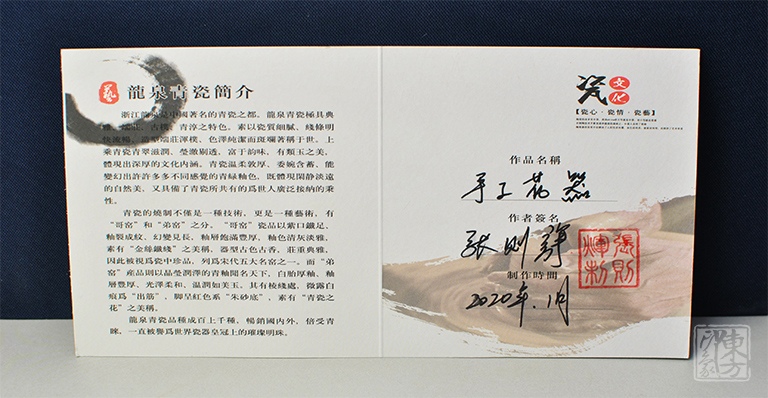 藝 龍泉青瓷簡介
浙江龍泉是中國著名的青瓷之都。龍泉青瓷極具典
雅、端莊、古樸、青淳之特色。素以瓷質細膩、綫條明
快流暢、造型端莊渾樸、色澤純潔而斑斕著稱于世。上
乘瓷青青翠滋潤、瑩澈剔透，富于韵味，有類玉之美，
體現出深厚的文化内涵。青瓷温柔敦厚、委婉含蓄，能
變幻出許許多多不同感覺的青緑釉色，既體現閑静淡遠
的自然美，又具備了青瓷所共有的爲世人廣泛接納的秉
性。
青瓷的燒制不僅是一種技術，更是一種藝術，有
“哥窑”和“弟窑”之分。“哥窑”瓷品以紫口鐵足、
釉裂成紋、幻變見長，釉層飽滿豐厚，釉色清灰淡雅。
素有“金絲鐵綫”之美稱，器型古色古香，莊重典雅。
因此被視爲瓷中珍品，列爲宋代五大名窑之一。而“弟
窑”産品則以晶瑩潤澤的青釉聞名天下，白胎厚釉，釉
層豐厚，光澤柔和，温潤如美玉。其有棱綫處，微露白
痕爲“出筋”，脚呈紅色系“朱砂底”，素有“青瓷之
花”之美稱。
龍泉青瓷品種成百上千種，暢銷國内外，倍受青
睞，一直被譽爲世界瓷器皇冠上的璀璨明珠。
瓷 文化
【瓷心·瓷情·瓷藝】
作品名稱
手工花器
作者簽名
張則輝
張則
輝制
制作時間
2020年.1月
東方